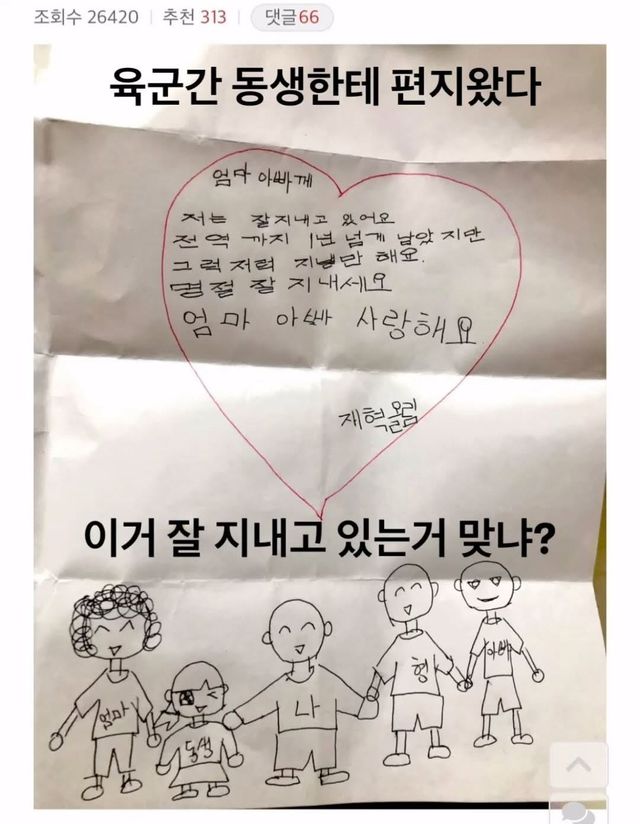 조회수 26420 | 추천 313 | 댓글66
육군간 동생한테 편지왔다
엄마 아빠께
저는 잘지내고 있어요
전역 까지 1년 넘게 남았지만
그럭저럭 지낼만 해요.
명절 잘 지내세요
엄마 아빠 사랑해요
재혁올림
이거 잘 지내고 있는거 맞냐?
엄마
동생
나
형
아빠